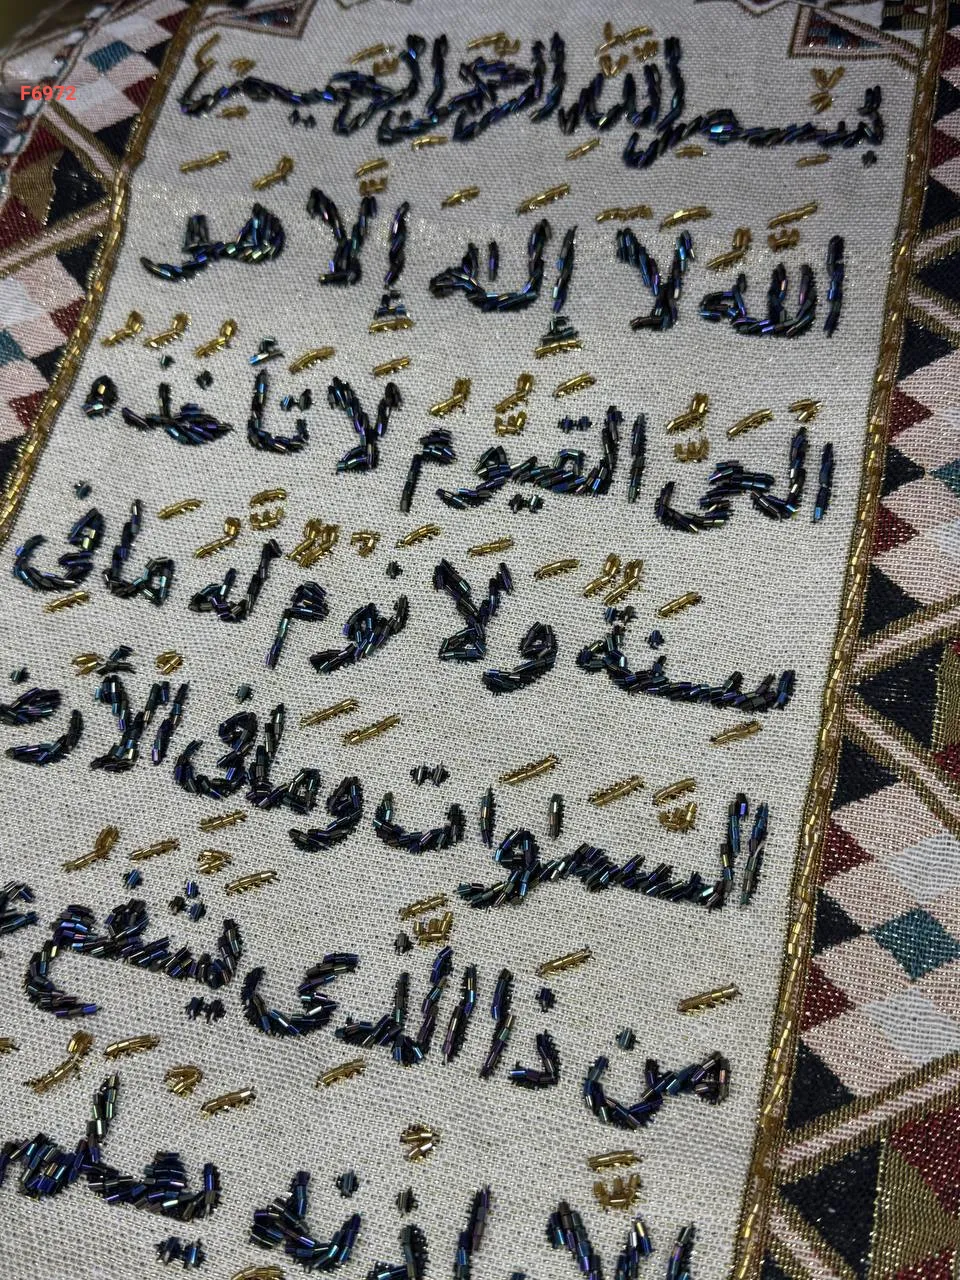 F6972
بِسْمِ اللَّهِ الرَّحْمَنِ الرَّحِيمِ
اللَّهُ لَآ إِلَهَ إِلَّا هُوَ
الْحَيُّ الْقَيُّومُ لَا تَأْخُذُهُ
سِنَةٌ وَلَا نَوْمٌ لَّهُ مَا فِي
السَّمَاوَاتِ وَمَا فِي الْأَرْضِ
مَن ذَا الَّذِي يَشْفَعُ
إِلَّا بِإِذْنِهِ يَعْلَمُ